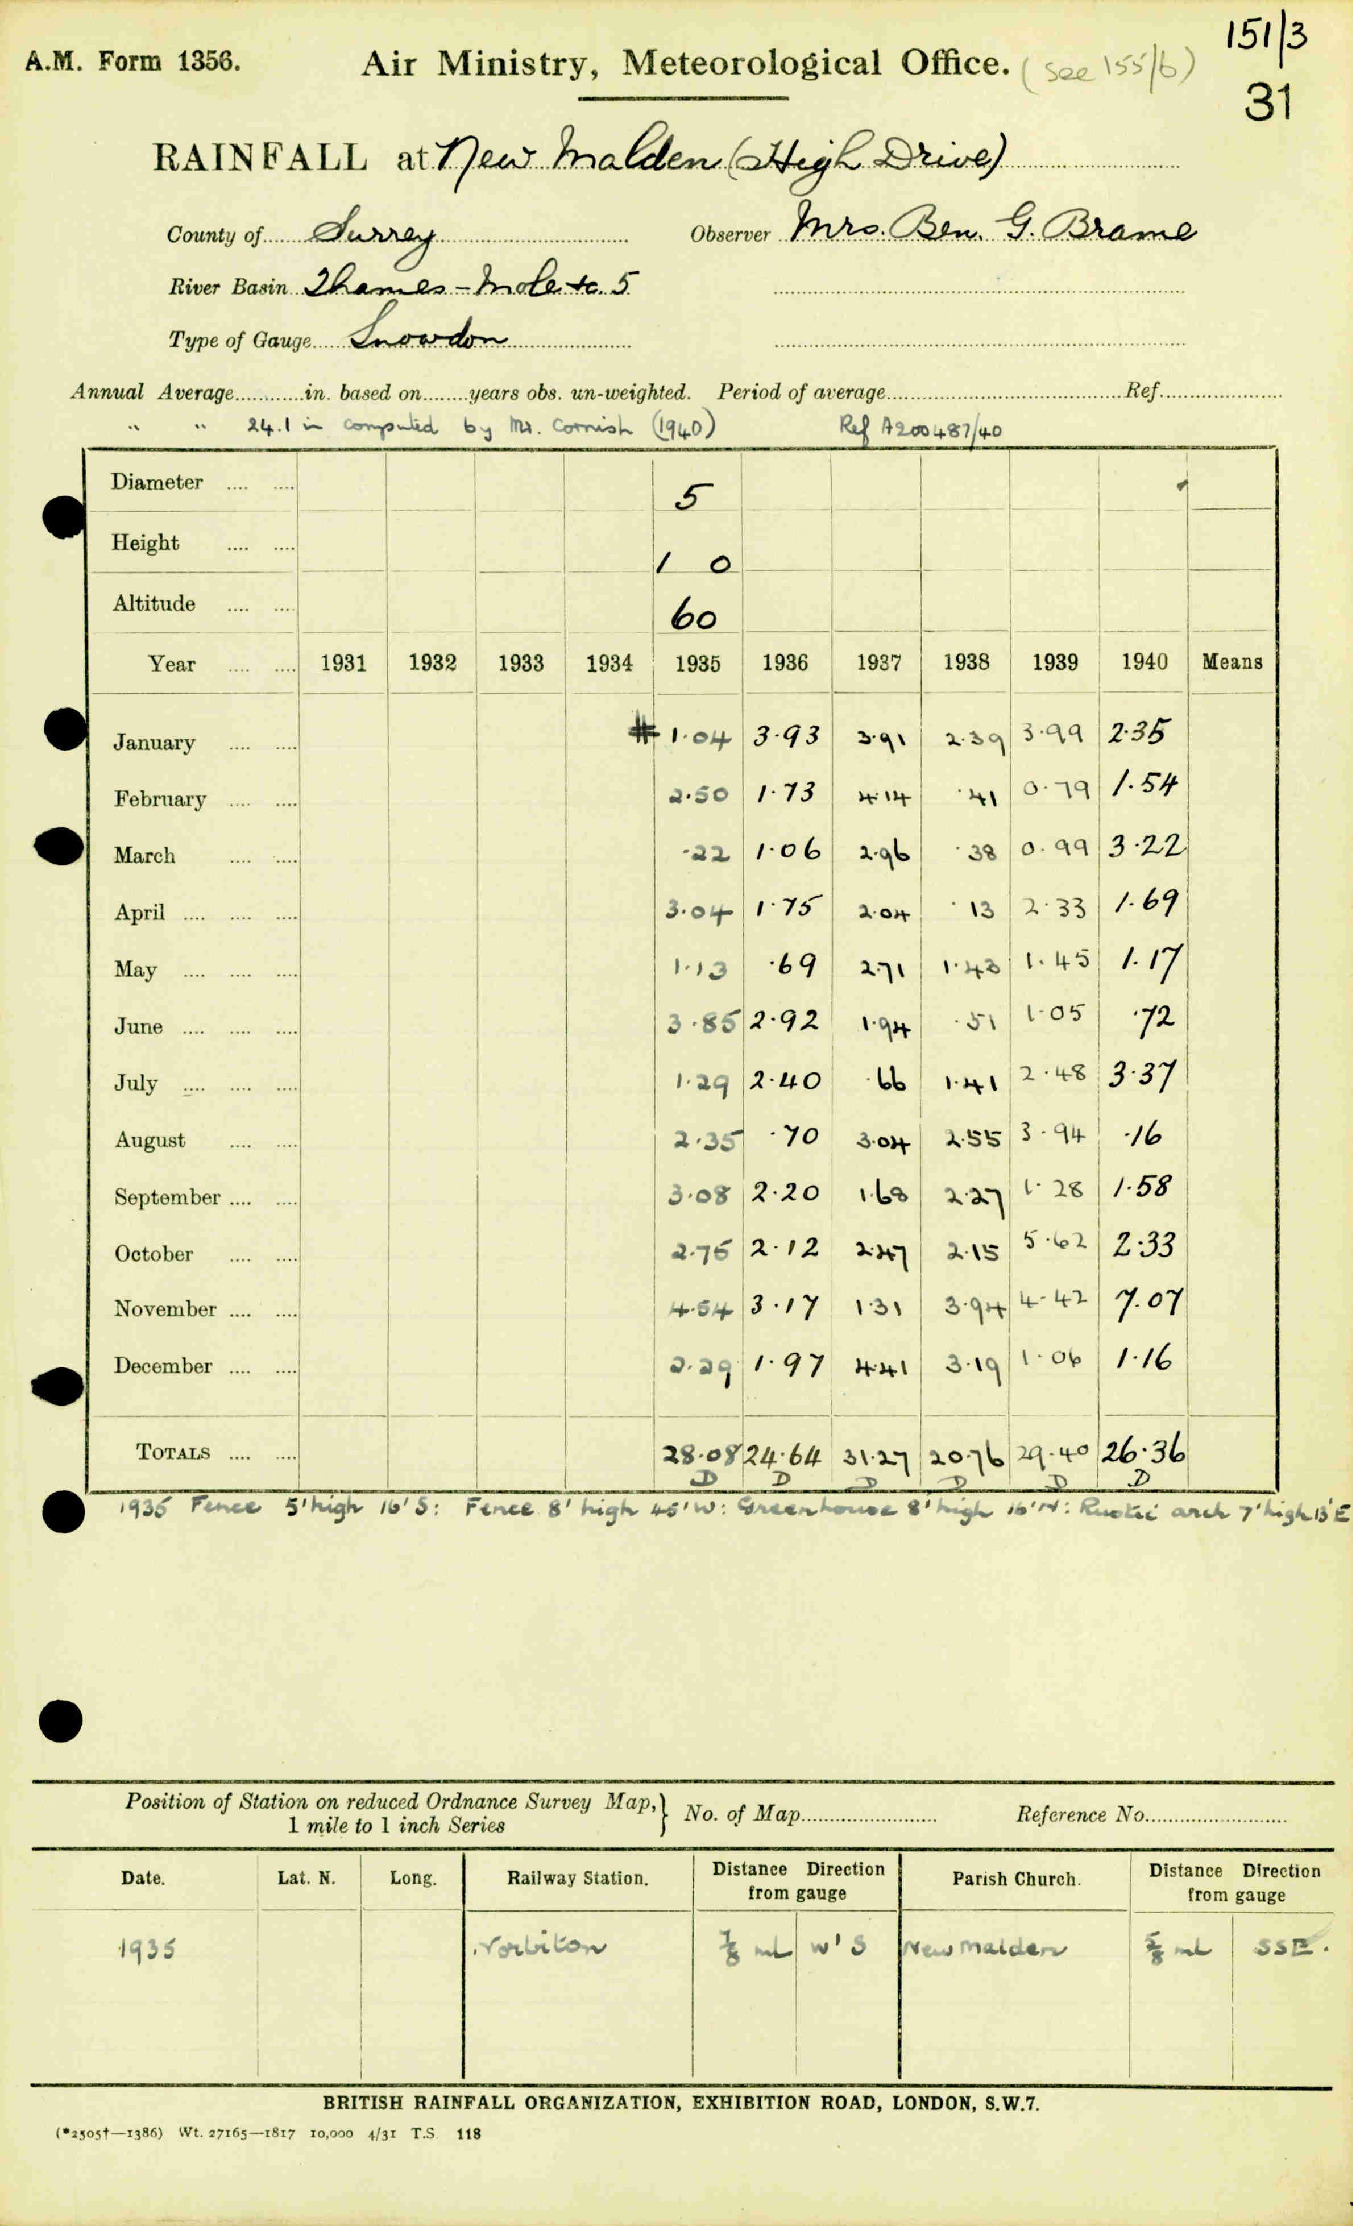 151/3
A.M. Form 1356. Air Ministry, Meteorological Office. (see 155/6)
31
RAINFALL at New Malden (High Drive)
County of Surrey Observer Mrs. Ben. G. Brame
River Basin Thames - Mole to 5
Type of Gauge Snowdon
Annual Average............in. based on........years obs. un-weighted. Period of average.......... Ref..........
" " 24.1 in computed by Mr. Cornish (1940) Ref A200487/40
Diameter .... .... 5
Height .... .... 1 0
Altitude .... .... 60
Year .... .... 1931 1932 1933 1934 1935 1936 1937 1938 1939 1940 Means
January .... .... # 1.04 3.93 3.91 2.39 3.99 2.35
February .... .... 2.50 1.73 4.14 .41 0.79 1.54
March .... .... .22 1.06 2.96 .38 0.99 3.22
April .... .... .... 3.04 1.75 2.04 .13 2.33 1.69
May .... .... .... 1.13 .69 2.71 1.43 1.45 1.17
June .... .... .... 3.85 2.92 1.94 .51 1.05 .72
July .... .... .... 1.29 2.40 .66 1.41 2.48 3.37
August .... .... 2.35 .70 3.04 2.55 3.94 .16
September .... .... 3.08 2.20 1.68 2.27 1.28 1.58
October .... .... 2.75 2.12 2.47 2.15 5.62 2.33
November .... .... 4.54 3.17 1.31 3.94 4.42 7.07
December .... .... 2.29 1.97 4.41 3.19 1.06 1.16
TOTALS .... .... 28.08 24.64 31.27 20.76 29.40 26.36
D D D D D D
1935 Fence 5' high 16' S: Fence 8' high 45' W: Greenhouse 8' high 16' N: Rustic arch 7' high 13' E
Position of Station on reduced Ordnance Survey Map,} No. of Map.......... Reference No..........
1 mile to 1 inch Series
Date. Lat. N. Long. Railway Station. Distance Direction from gauge Parish Church. Distance Direction from gauge
1935 Norbiton 7/8 ml W'S New Malden 5/8 ml SSE.
BRITISH RAINFALL ORGANIZATION, EXHIBITION ROAD, LONDON, S.W.7.
(*2505†—1386) Wt. 27165—1817 10,000 4/31 T.S. 118